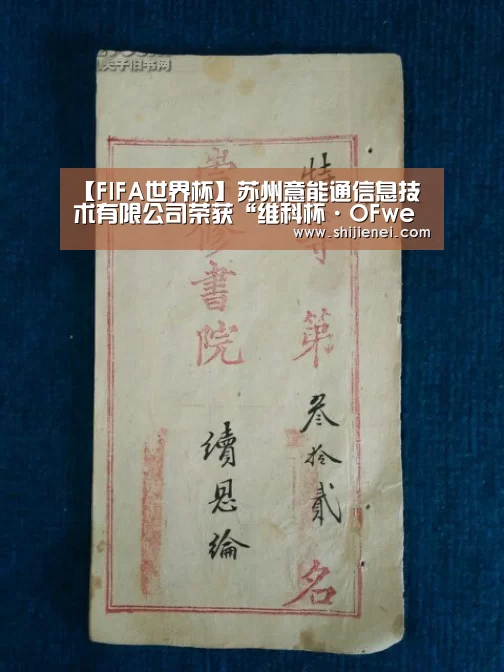 夫子旧书网
【FIFA世界杯】苏州意能通信息技
术有限公司荣获“维科杯·OFwe
www.shijienei.com
特等第叁拾貳名
書院
續恩綸